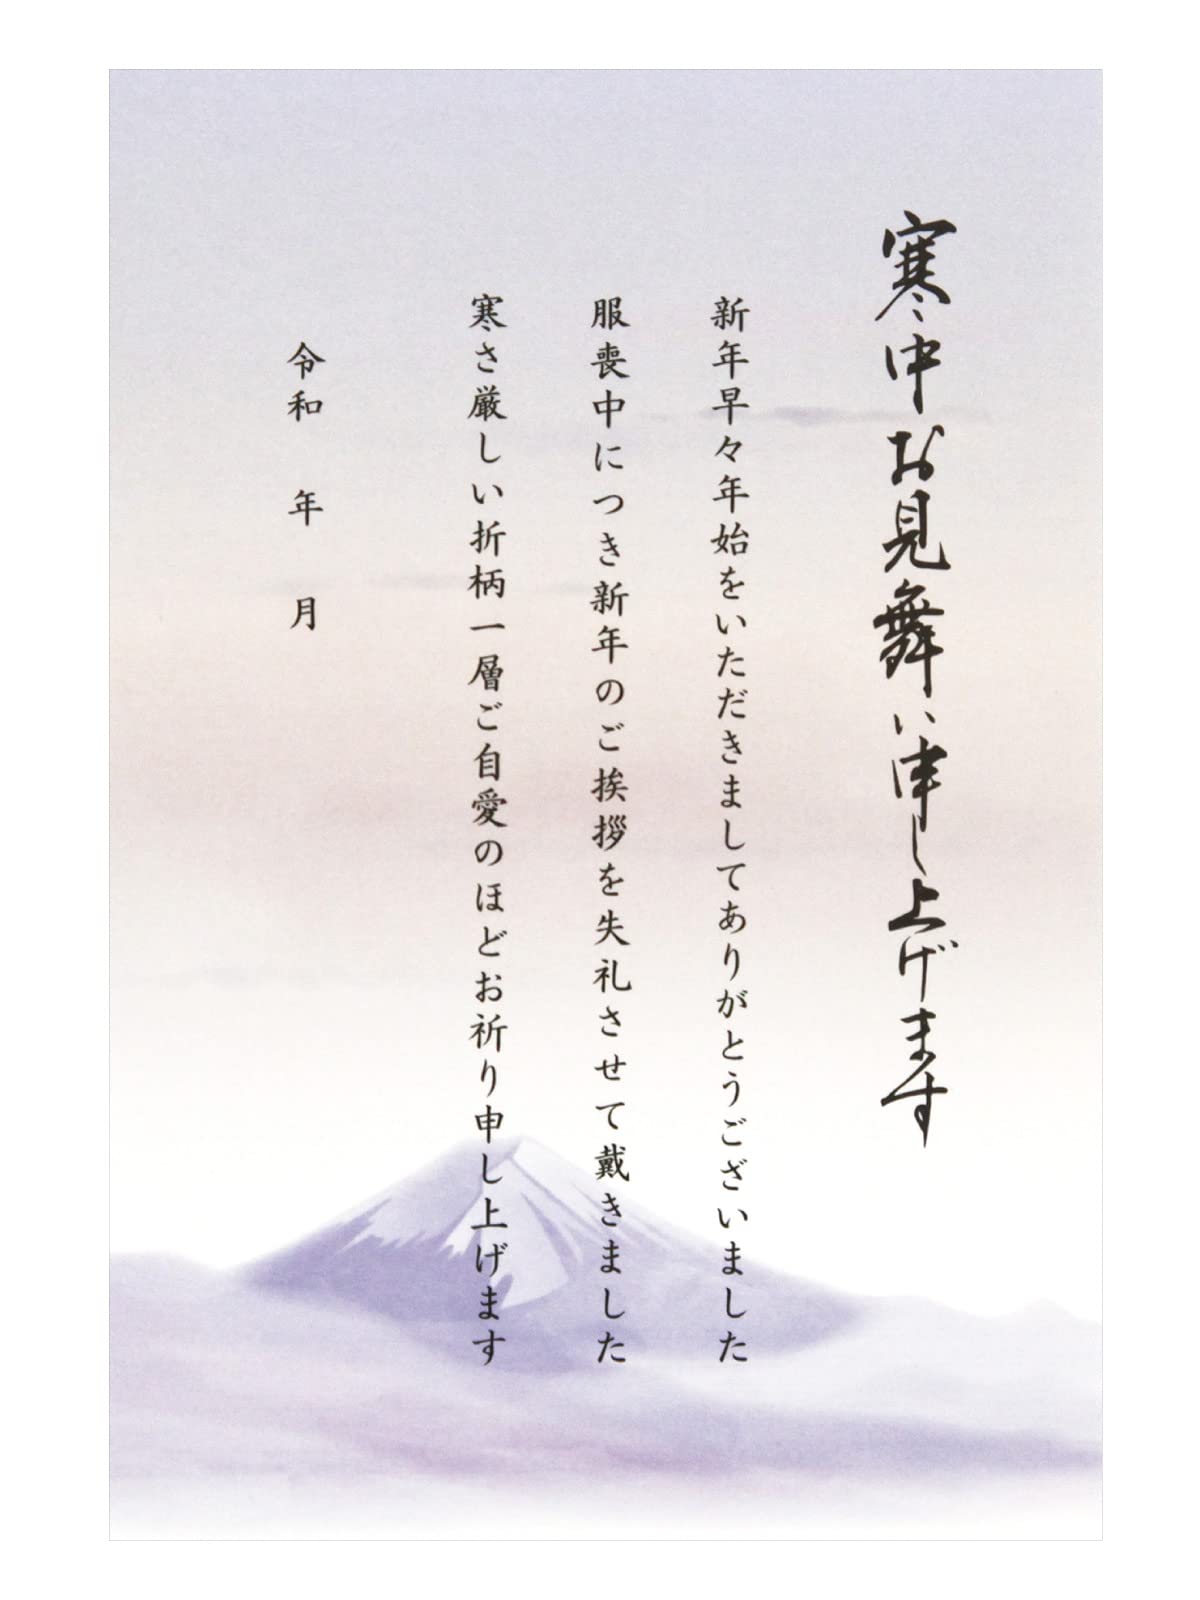 寒中お見舞い申し上げます
新年早々年始をいただきましてありがとうございました
服喪中につき新年のご挨拶を失礼させて戴きました
寒さ厳しい折柄一層ご自愛のほどお祈り申し上げます
令和　年　月